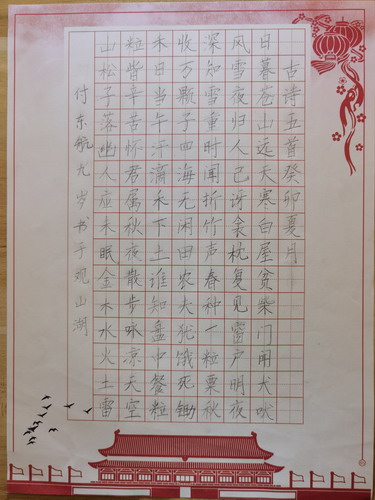 古诗五首癸卯夏月
日暮苍山远天寒白屋贫柴门闻犬吠
风雪夜归人已讶衾枕复见窗户明夜
深知雪重时闻折竹声春种一粒粟秋
收万颗子四海无闲田农夫犹饿死锄
禾日当午汗滴禾下土谁知盘中餐粒
粒皆辛苦怀君属秋夜散步咏凉天空
山松子落幽人应未眠金木水火土雷
付东航九岁书于观山湖